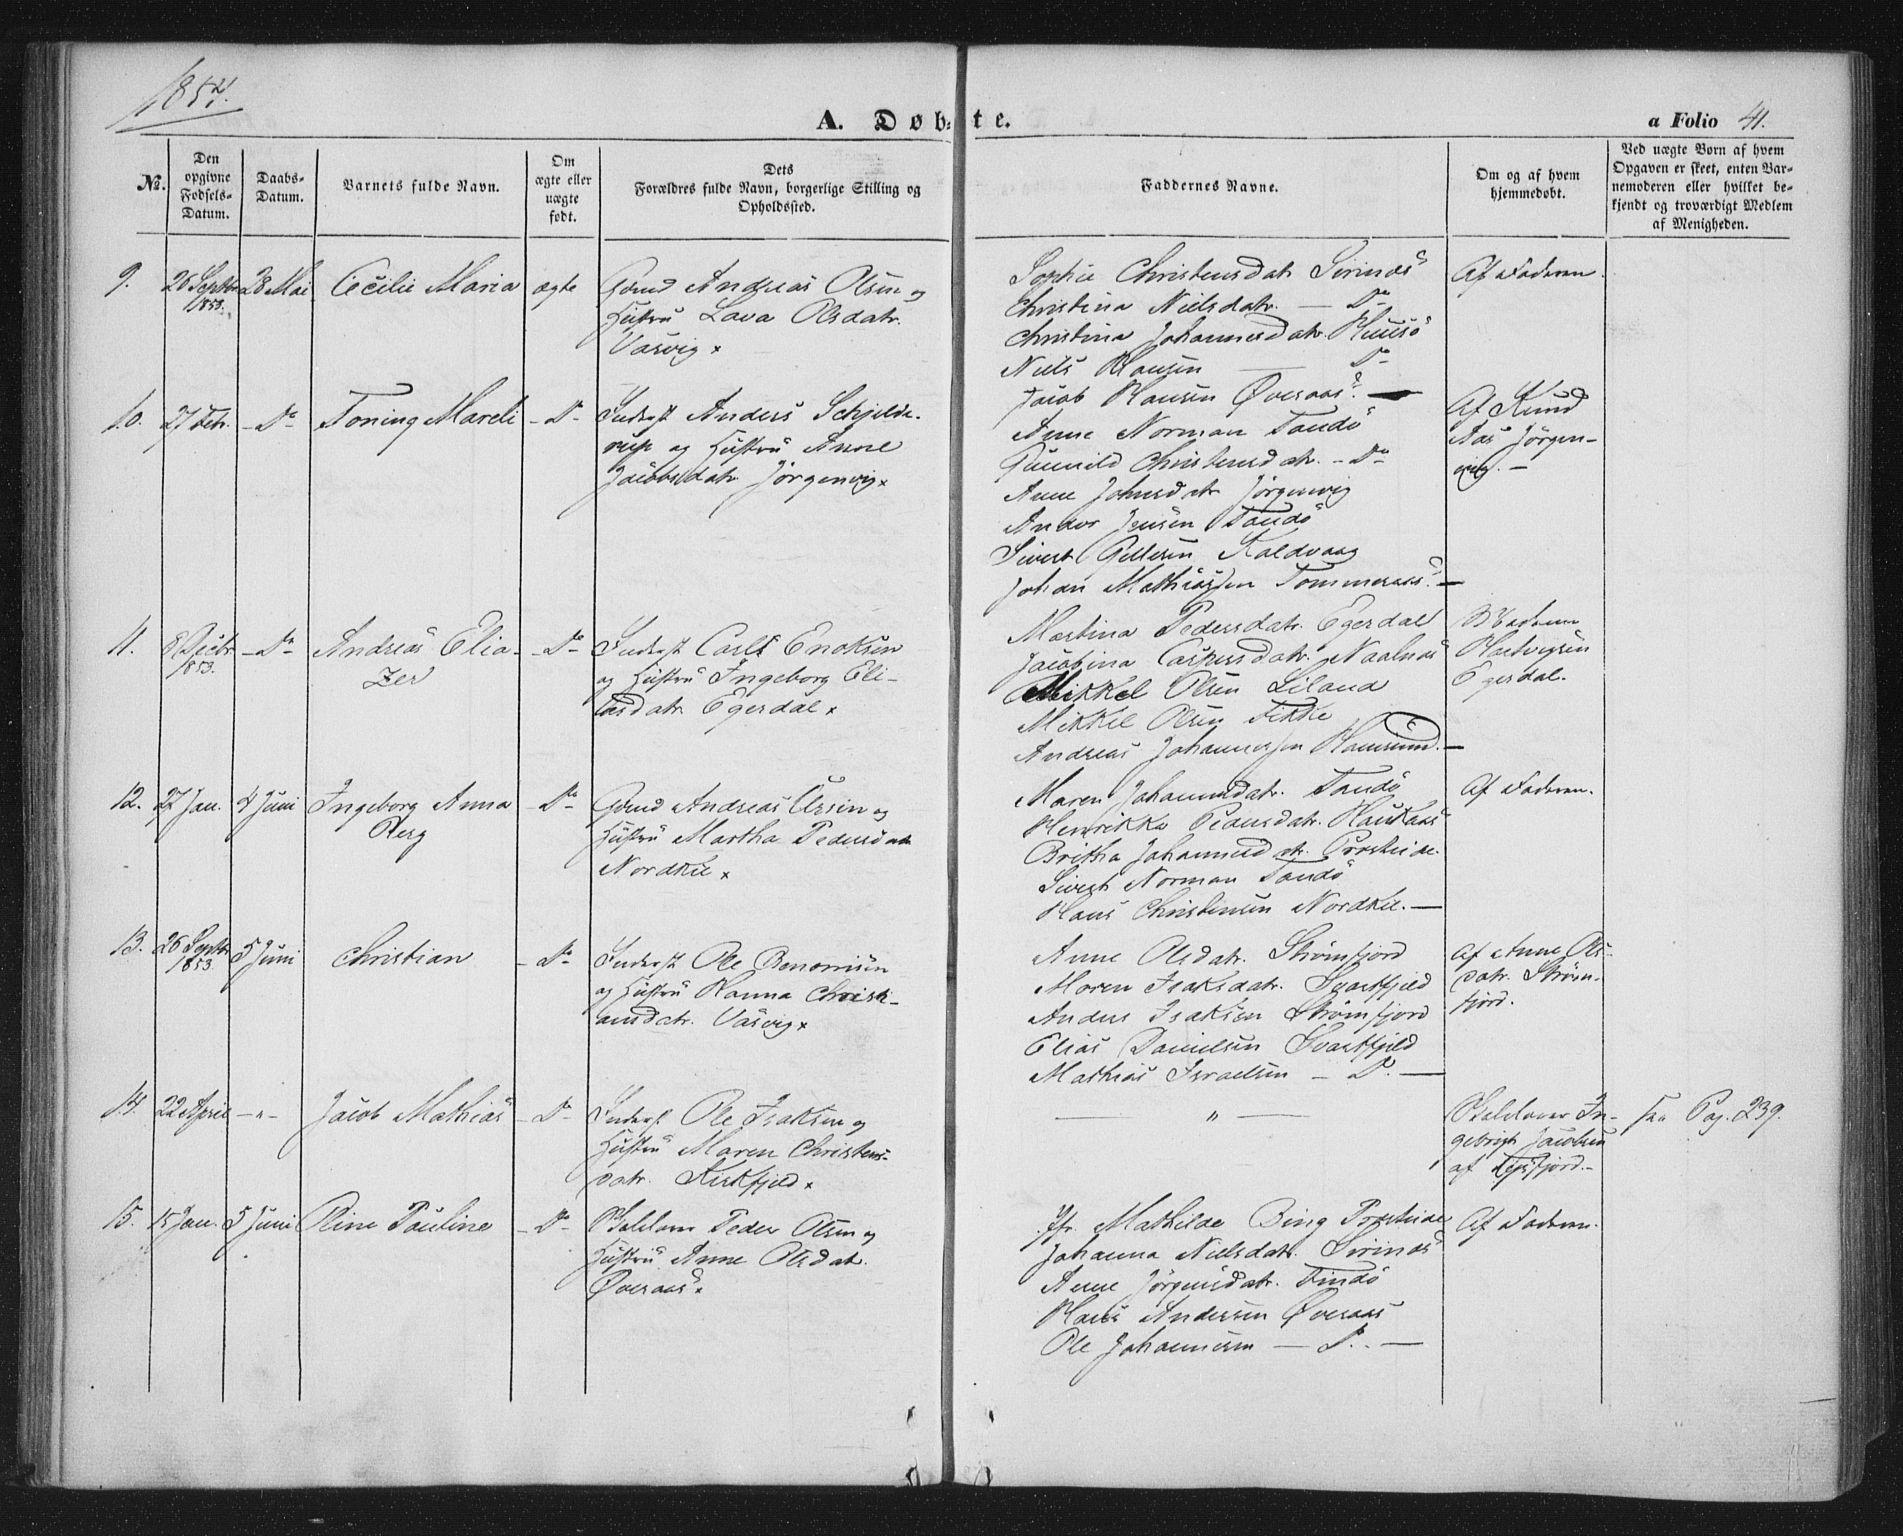 1854.
A. Døb-te.
a Folio 41.
No.
Den opgivne Fødsels-Datum.
Daabs-Datum.
Barnets fulde Navn.
Om ægte eller uægte født.
Dets Forældres fulde Navn, borgerlige Stilling og Opholdssted.
Faddernes Navne.
Om og af hvem hjemmedøbt.
Ved uægte Børn af hvem Opgaven er skeet, enten Barnemoderen eller hvilket bekjendt og troværdigt Medlem af Menigheden.
9. 26 Septbr 1853. 28 Mai Cecilie Maria ægte
Gdmd Andreas Olsen og
Hustru Lava Olsdatr.
Vasvig x
Sophie Christensdatr Sørinæs
Christina Nielsdatr. — Do
Christina Johannesdatr. Huusø
Niels Hansen — Do
Jacob Hansen Øveraas. —
Af Faderen.
10. 27 Febr. - Do Toning Mareli - Do -
Inderst Anders Schjelde-
rup og Hustru Anne
Jacobsdatr Jørgenvig x
Anne Norman Tandø
Gunnild Christensdatr. - Do
Anne Johnsdatr Jørgenvig
Andor Jensen Tandø
Sivert Pettersen Kaldvaag
Johan Mathiassen Tommeraas. —
Af Knud
Aas Jørgen-
vig. —
11. 8 Decbr 1853. - Do Andreas Elia-
zer - Do
Inderst Carl Enoksen
og Hustru Ingeborg Eli-
asdatr. Egerdal x
Martina Pedersdatr. Egerdal
Jacobina Caspersdatr. Naalnæs
Mikkel Olsen Liland
Mikkel Olsen Fikke
Andreas Johannessen Hamsund. —
Hartvigsen
Egerdal.
12. 27 Jan. 4 Juni Ingeborg Anna
Berg - Do -
Gdmd Andreas Ursin og
Hustru Martha Pedersdatr
Nordkil x
Maren Johannesdatr. Tandø
Henrikka Pedersdatr. Haukaas
Britha Johannesdatr. Presteide.
Sivert Norman Tandø
Hans Christensen Nordkil. —
Af Faderen.
13. 26 Septbr 1853. 5 Juni Christian - Do -
Inderst Ole Benonisen
og Hustru Hanna Christi-
ansdatr. Vasvig x
Anne Olsdatr. Strømfjord
Maren Isaksdatr. Svartfjeld
Anders Isaksen Strømfjord
Elias Danielsen Svartfjeld
Mathias Israelsen — Do. —
Af Anne Ols-
datr. Strøm-
fjord.
14. 22 April — " — Jacob Mathias - Do -
Inderst Ole Isaksen og
Hustru Maren Christens-
datr. Kirkfjeld x
— " —
Skolelærer In-
gebrigt Jacobsen
af Tysfjord. —
Pag. 239.
15. 15 Jan. 5 Juni Oline Pauline - Do -
Peder Olsen og
Hustru Anne Olsdatr.
Øveraas x
Jfr. Mathilde Bing Presteide
Johanna Nielsdatr. Sørinæs
Anne Jørgensdatr. Findø
Hans Andersen Øveraas
Ole Johannesen — Do. —
Af Faderen.